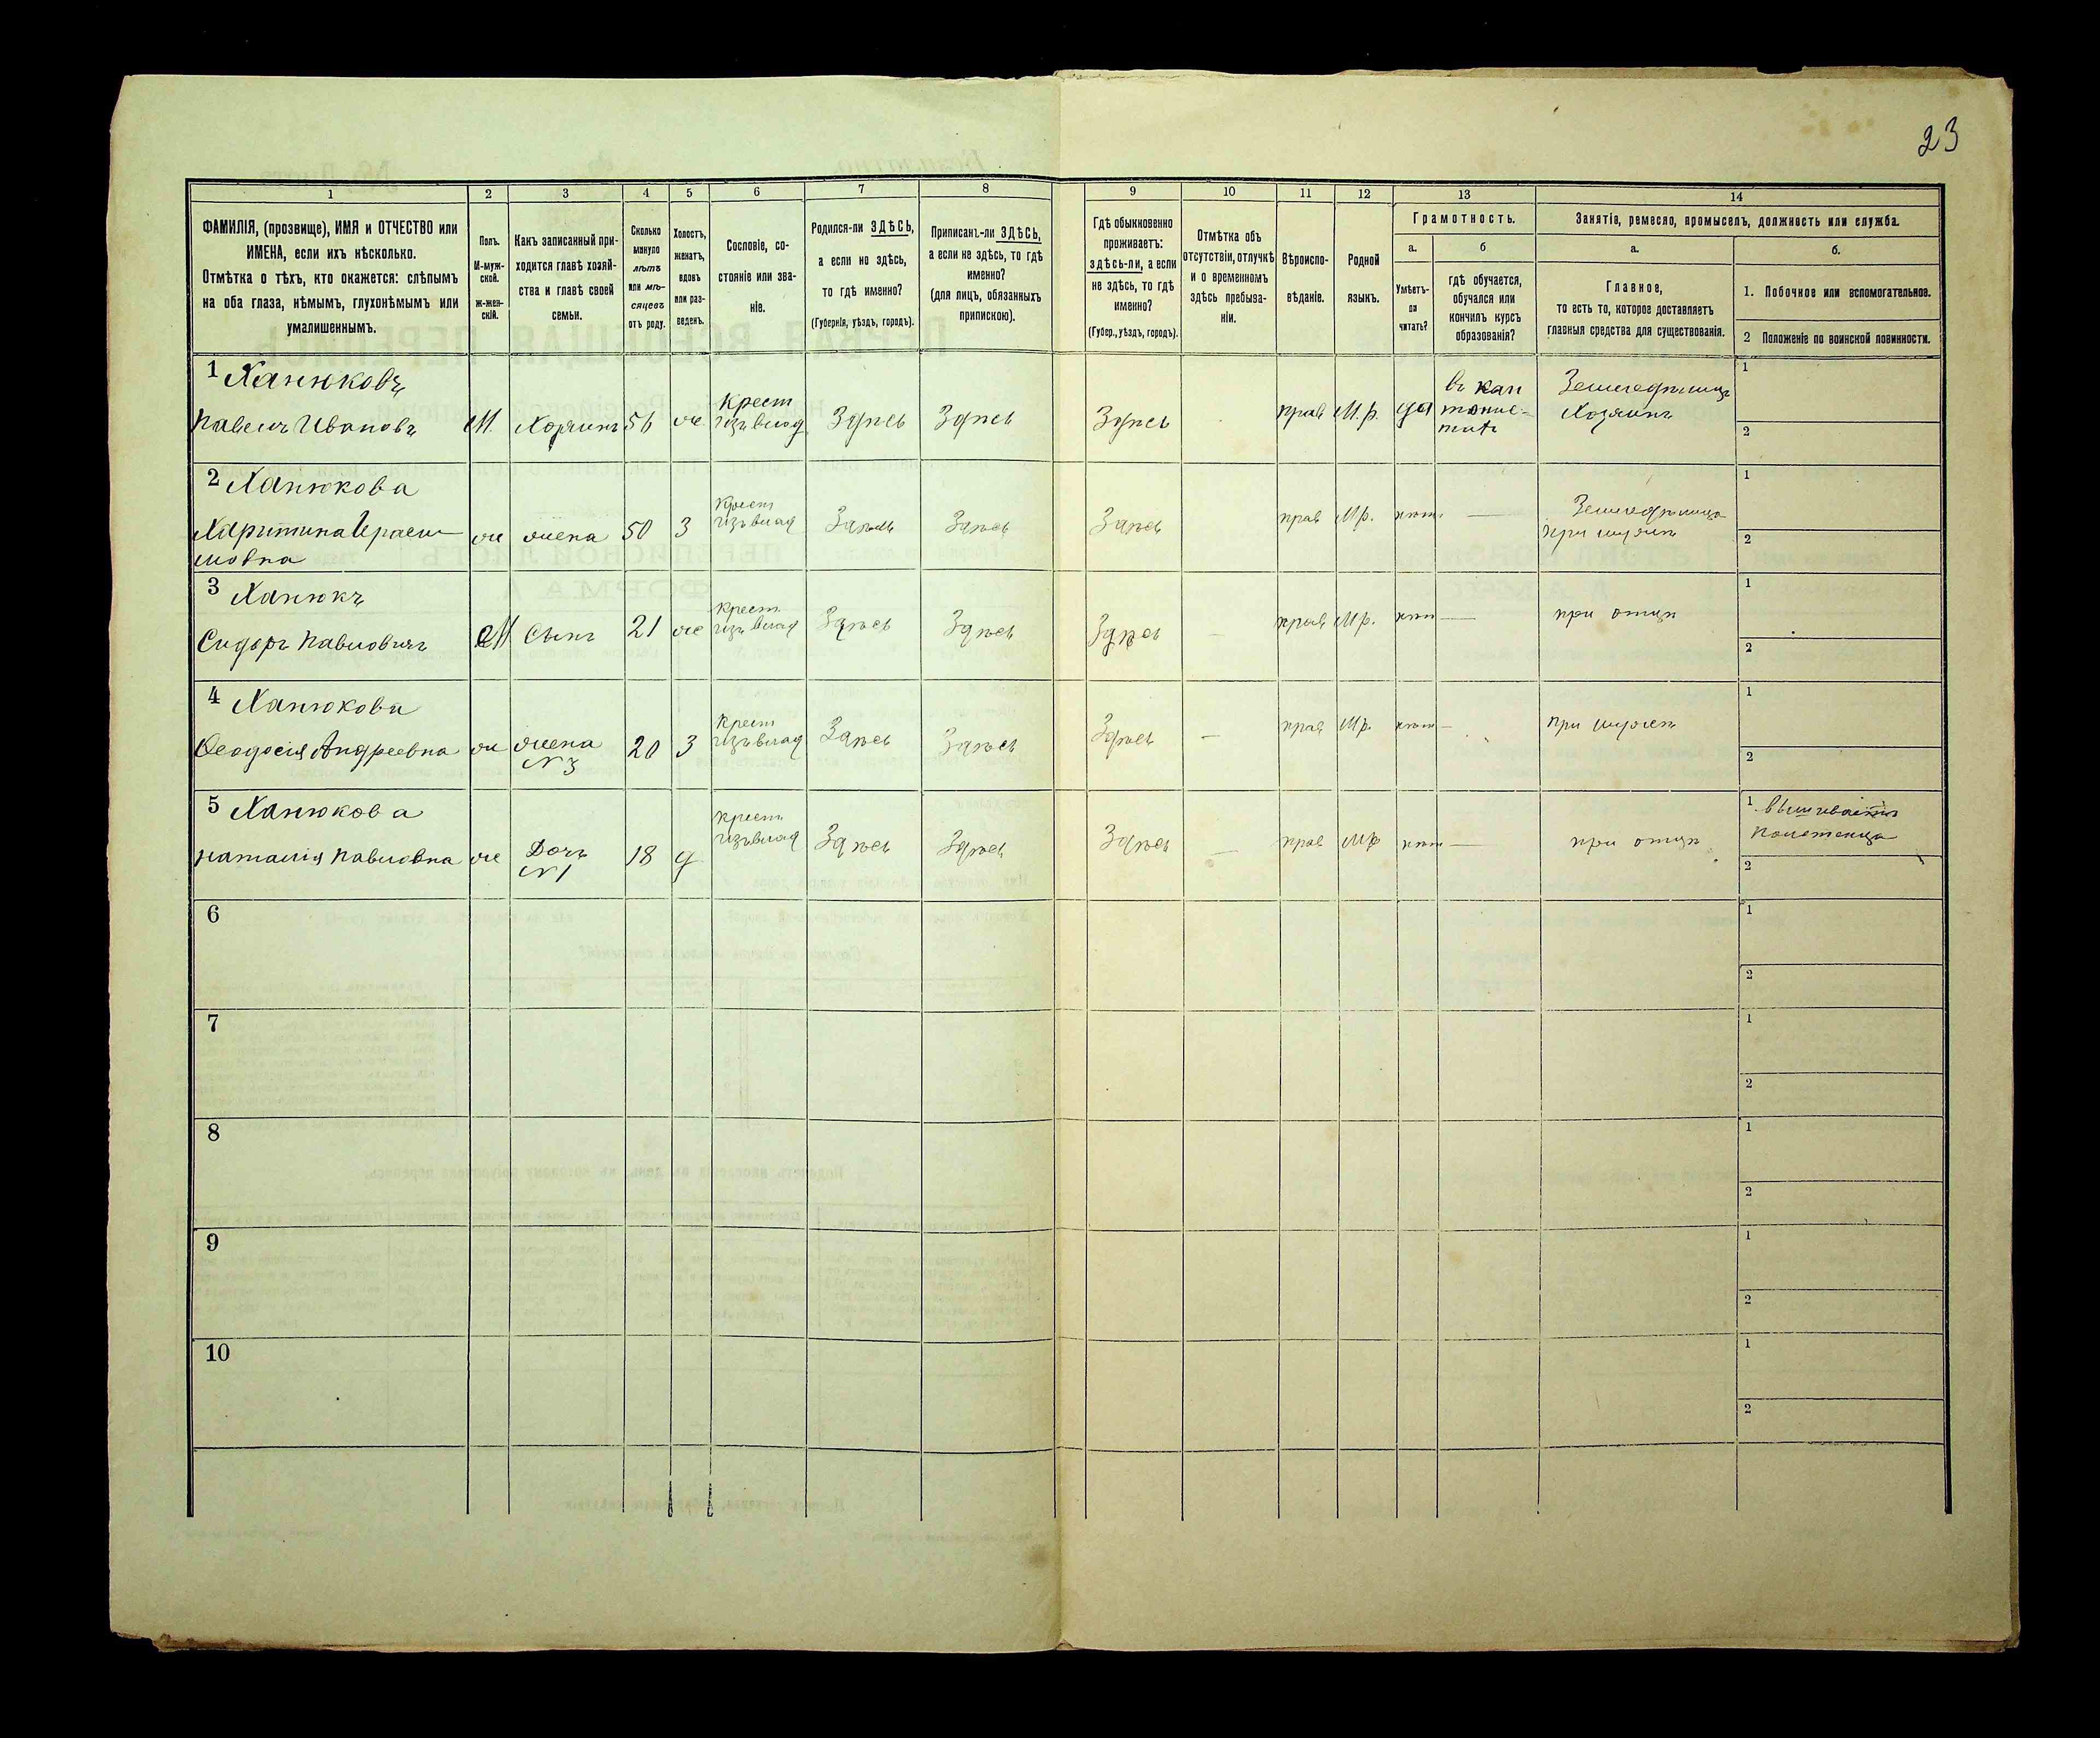 23
1 2 3 4 5 6 7 8 9 10 11 12 13 14
ФАМИЛІЯ, (прозвище), ИМЯ и ОТЧЕСТВО или
ИМЕНА, если ихъ нѣсколько.
Отмѣтка о тѣхъ, кто окажется: слѣпымъ
на оба глаза, нѣмымъ, глухонѣмымъ или
умалишеннымъ.
Полъ.
М-муж-
ской.
ж-жен-
скій.
Какъ записанный при-
ходится главѣ хозяй-
ства и главѣ своей
семьи.
Сколько
минуло
лѣтъ
или мѣ-
сяцевъ
отъ роду.
Холостъ,
женатъ,
вдовъ
или раз-
веденъ.
Сословіе, со-
стояніе или зва-
ніе.
Родился-ли ЗДѢСЬ,
а если не здѣсь,
то гдѣ именно?
(Губернія, уѣздъ, городъ).
Приписанъ-ли ЗДѢСЬ,
а если не здѣсь, то гдѣ
именно?
(для лицъ, обязанныхъ
припискою).
Гдѣ обыкновенно
проживаетъ:
здѣсь-ли, а если
не здѣсь, то гдѣ
именно?
(Губер., уѣздъ, городъ).
Отмѣтка объ
отсутствіи, отлучкѣ
и о временномъ
здѣсь пребыва-
ніи.
Вѣроиспо-
вѣданіе.
Родной
языкъ.
Грамотность.
а.
Умѣетъ-
ли
читать?
б
гдѣ обучается,
обучался или
кончилъ курсъ
образованія?
Занятіе, ремесло, промыселъ, должность или служба.
а.
Главное,
то есть то, которое доставляетъ
главныя средства для существованія.
б.
1. Побочное или вспомогательное.
2 Положеніе по воинской повинности.
1 Ханюковъ
Павелъ Ивановъ М. Хозяинъ 56 ж Крест изъ влад Здѣсь Здѣсь Здѣсь прав М.р. да въ кан
тонис-
титъ
Земледѣлецъ
Хозяинъ
1
2
2 Ханюкова
Харитина
мовна
ж жена 50 З Крест изъ влад Здѣсь Здѣсь Здѣсь прав М.р. нѣт —
Земледѣлица
при мужѣ
1
2
3 Ханюкъ
Сидоръ Павловичъ М Сынъ 21 ж крест изъ влад Здѣсь Здѣсь Здѣсь — прав М.р. нѣт — при отцѣ
1
2
4 Ханюкова
Ѳеодосія Андреевна ж жена
№ 3
20 З Крест изъ влад Здѣсь Здѣсь Здѣсь — прав М.р. нѣт — при мужѣ
1
2
5 Ханюкова
Наталія Павловна ж Дочь
№ 1
18 д крест изъ влад Здѣсь Здѣсь Здѣсь — прав М.р нѣт — при отцѣ
1 вышиваетъ
полотенца
2
6
1
2
7
1
2
8
1
2
9
1
2
10
1
2